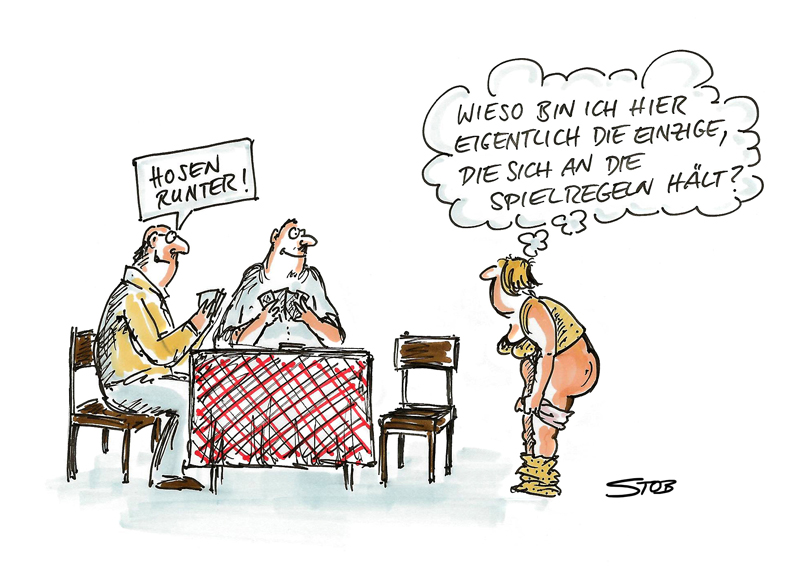 HOSEN
RUNTER!
WIESO BIN ICH HIER
EIGENTLICH DIE EINZIGE,
DIE SICH AN DIE
SPIELREGELN HÄLT?
STOB